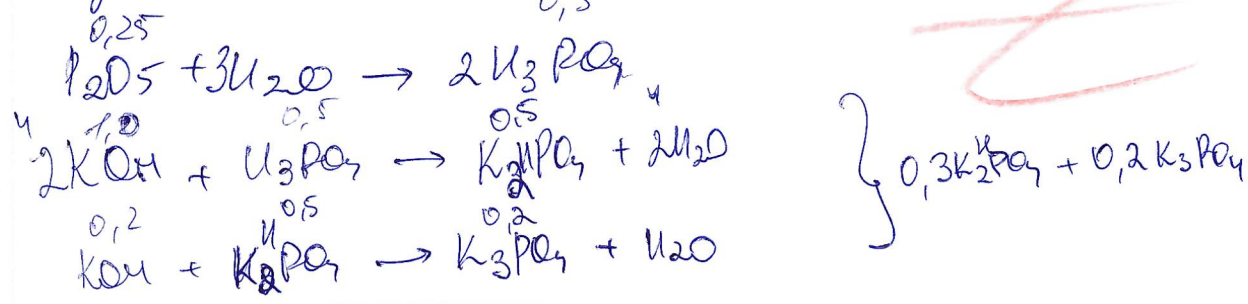 0,25 0,5
P2O5 + 3H2O → 2H3PO4
1,0 0,5 0,5
2KOH + H3PO4 → K2HPO4 + 2H2O
0,2 0,5 0,2
KOH + K2HPO4 → K3PO4 + H2O
} 0,3K2HPO4 + 0,2K3PO4